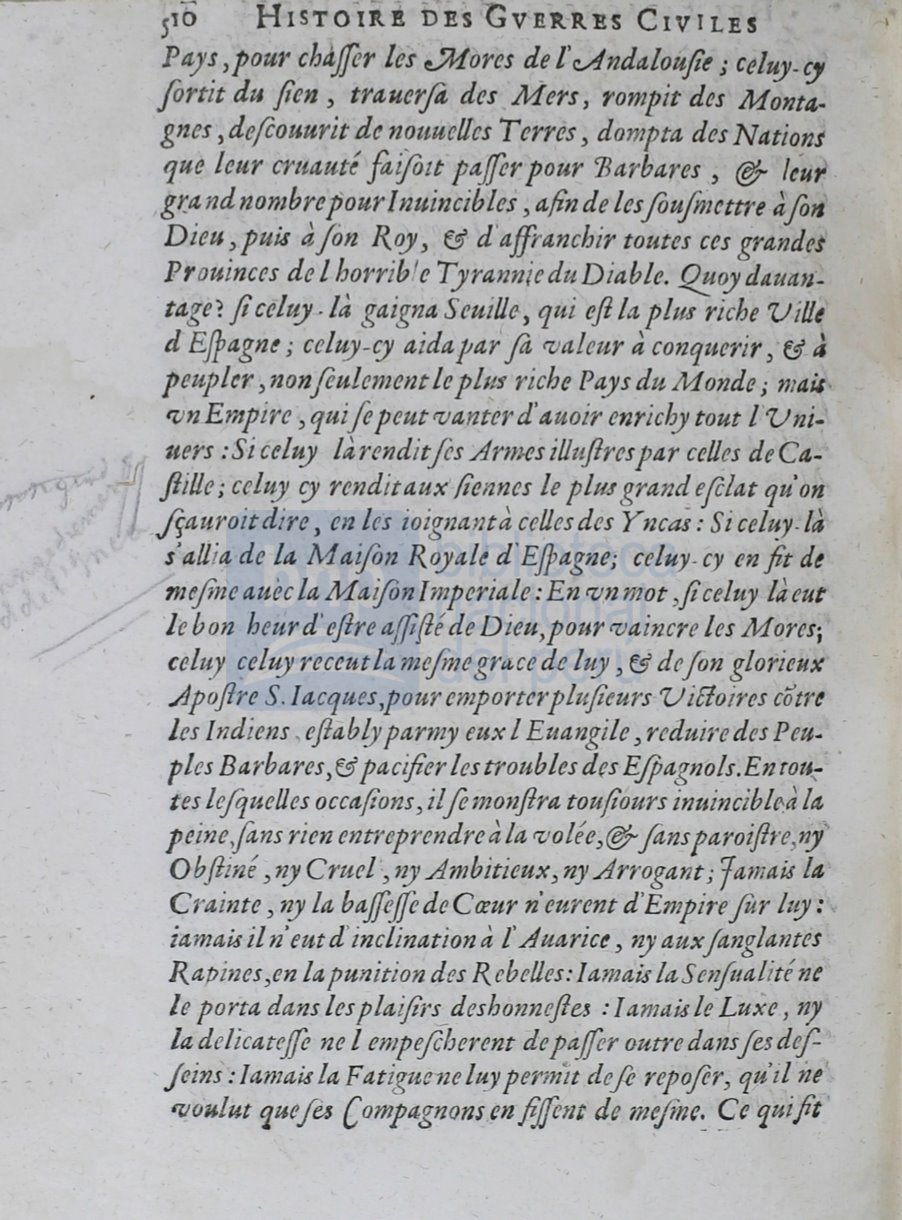 510 HISTOIRE DES GVERRES CIVILES
Pays, pour chaſſer les Mores de l'Andalouſie; celuy-cy
ſortit du ſien, trauerſa des Mers, rompit des Monta-
gnes, deſcouurit de nouuelles Terres, dompta des Nations
que leur cruauté faiſoit paſſer pour Barbares, & leur
grand nombre pour Inuincibles, afin de les ſouſmettre à ſon
Dieu, puis à ſon Roy, & d'affranchir toutes ces grandes
Prouinces de l horrible Tyrannie du Diable. Quoy dauan-
tage? ſi celuy-là gaigna Seuille, qui eſt la plus riche Ville
d'Eſpagne; celuy-cy aida par ſa valeur à conquerir, & à
peupler, non ſeulement le plus riche Pays du Monde; mais
vn Empire, qui ſe peut vanter d'auoir enrichy tout l'Vni-
uers: Si celuy là rendit ſes Armes illuſtres par celles de Ca-
ſtille; celuy cy rendit aux ſiennes le plus grand eſclat qu'on
ſçauroit dire, en les ioignant à celles des Yncas: Si celuy-là
s'allia de la Maiſon Royale d'Eſpagne; celuy-cy en fit de
meſme auèc la Maiſon Imperiale: En vn mot, ſi celuy là eut
le bon heur d'eſtre aſſiſté de Dieu, pour vaincre les Mores;
celuy celuy receut la meſme grace de luy, & de ſon glorieux
Apoſtre S. Iacques, pour emporter pluſieurs Victoires cõtre
les Indiens, eſtably parmy eux l Euangile, reduire des Peu-
ples Barbares, & pacifier les troubles des Eſpagnols. En tou-
tes leſquelles occaſions, il ſe monſtra touſiours inuincible à la
peine, ſans rien entreprendre à la volée, & ſans paroiſtre, ny
Obſtiné, ny Cruel, ny Ambitieux, ny Arrogant; Jamais la
Crainte, ny la baſſeſſe de Cœur n'eurent d'Empire ſur luy:
iamais il n'eut d'inclination à l'Auarice, ny aux ſanglantes
Rapines, en la punition des Rebelles: Iamais la Senſualité ne
le porta dans les plaiſirs deshonneſtes: Iamais le Luxe, ny
la delicateſſe ne l empeſcherent de paſſer outre dans ſes deſ-
ſeins: Iamais la Fatigue ne luy permit de ſe repoſer, qu'il ne
voulut que ſes Compagnons en fiſſent de meſme. Ce qui fit
biblioteca
nacional
del perú